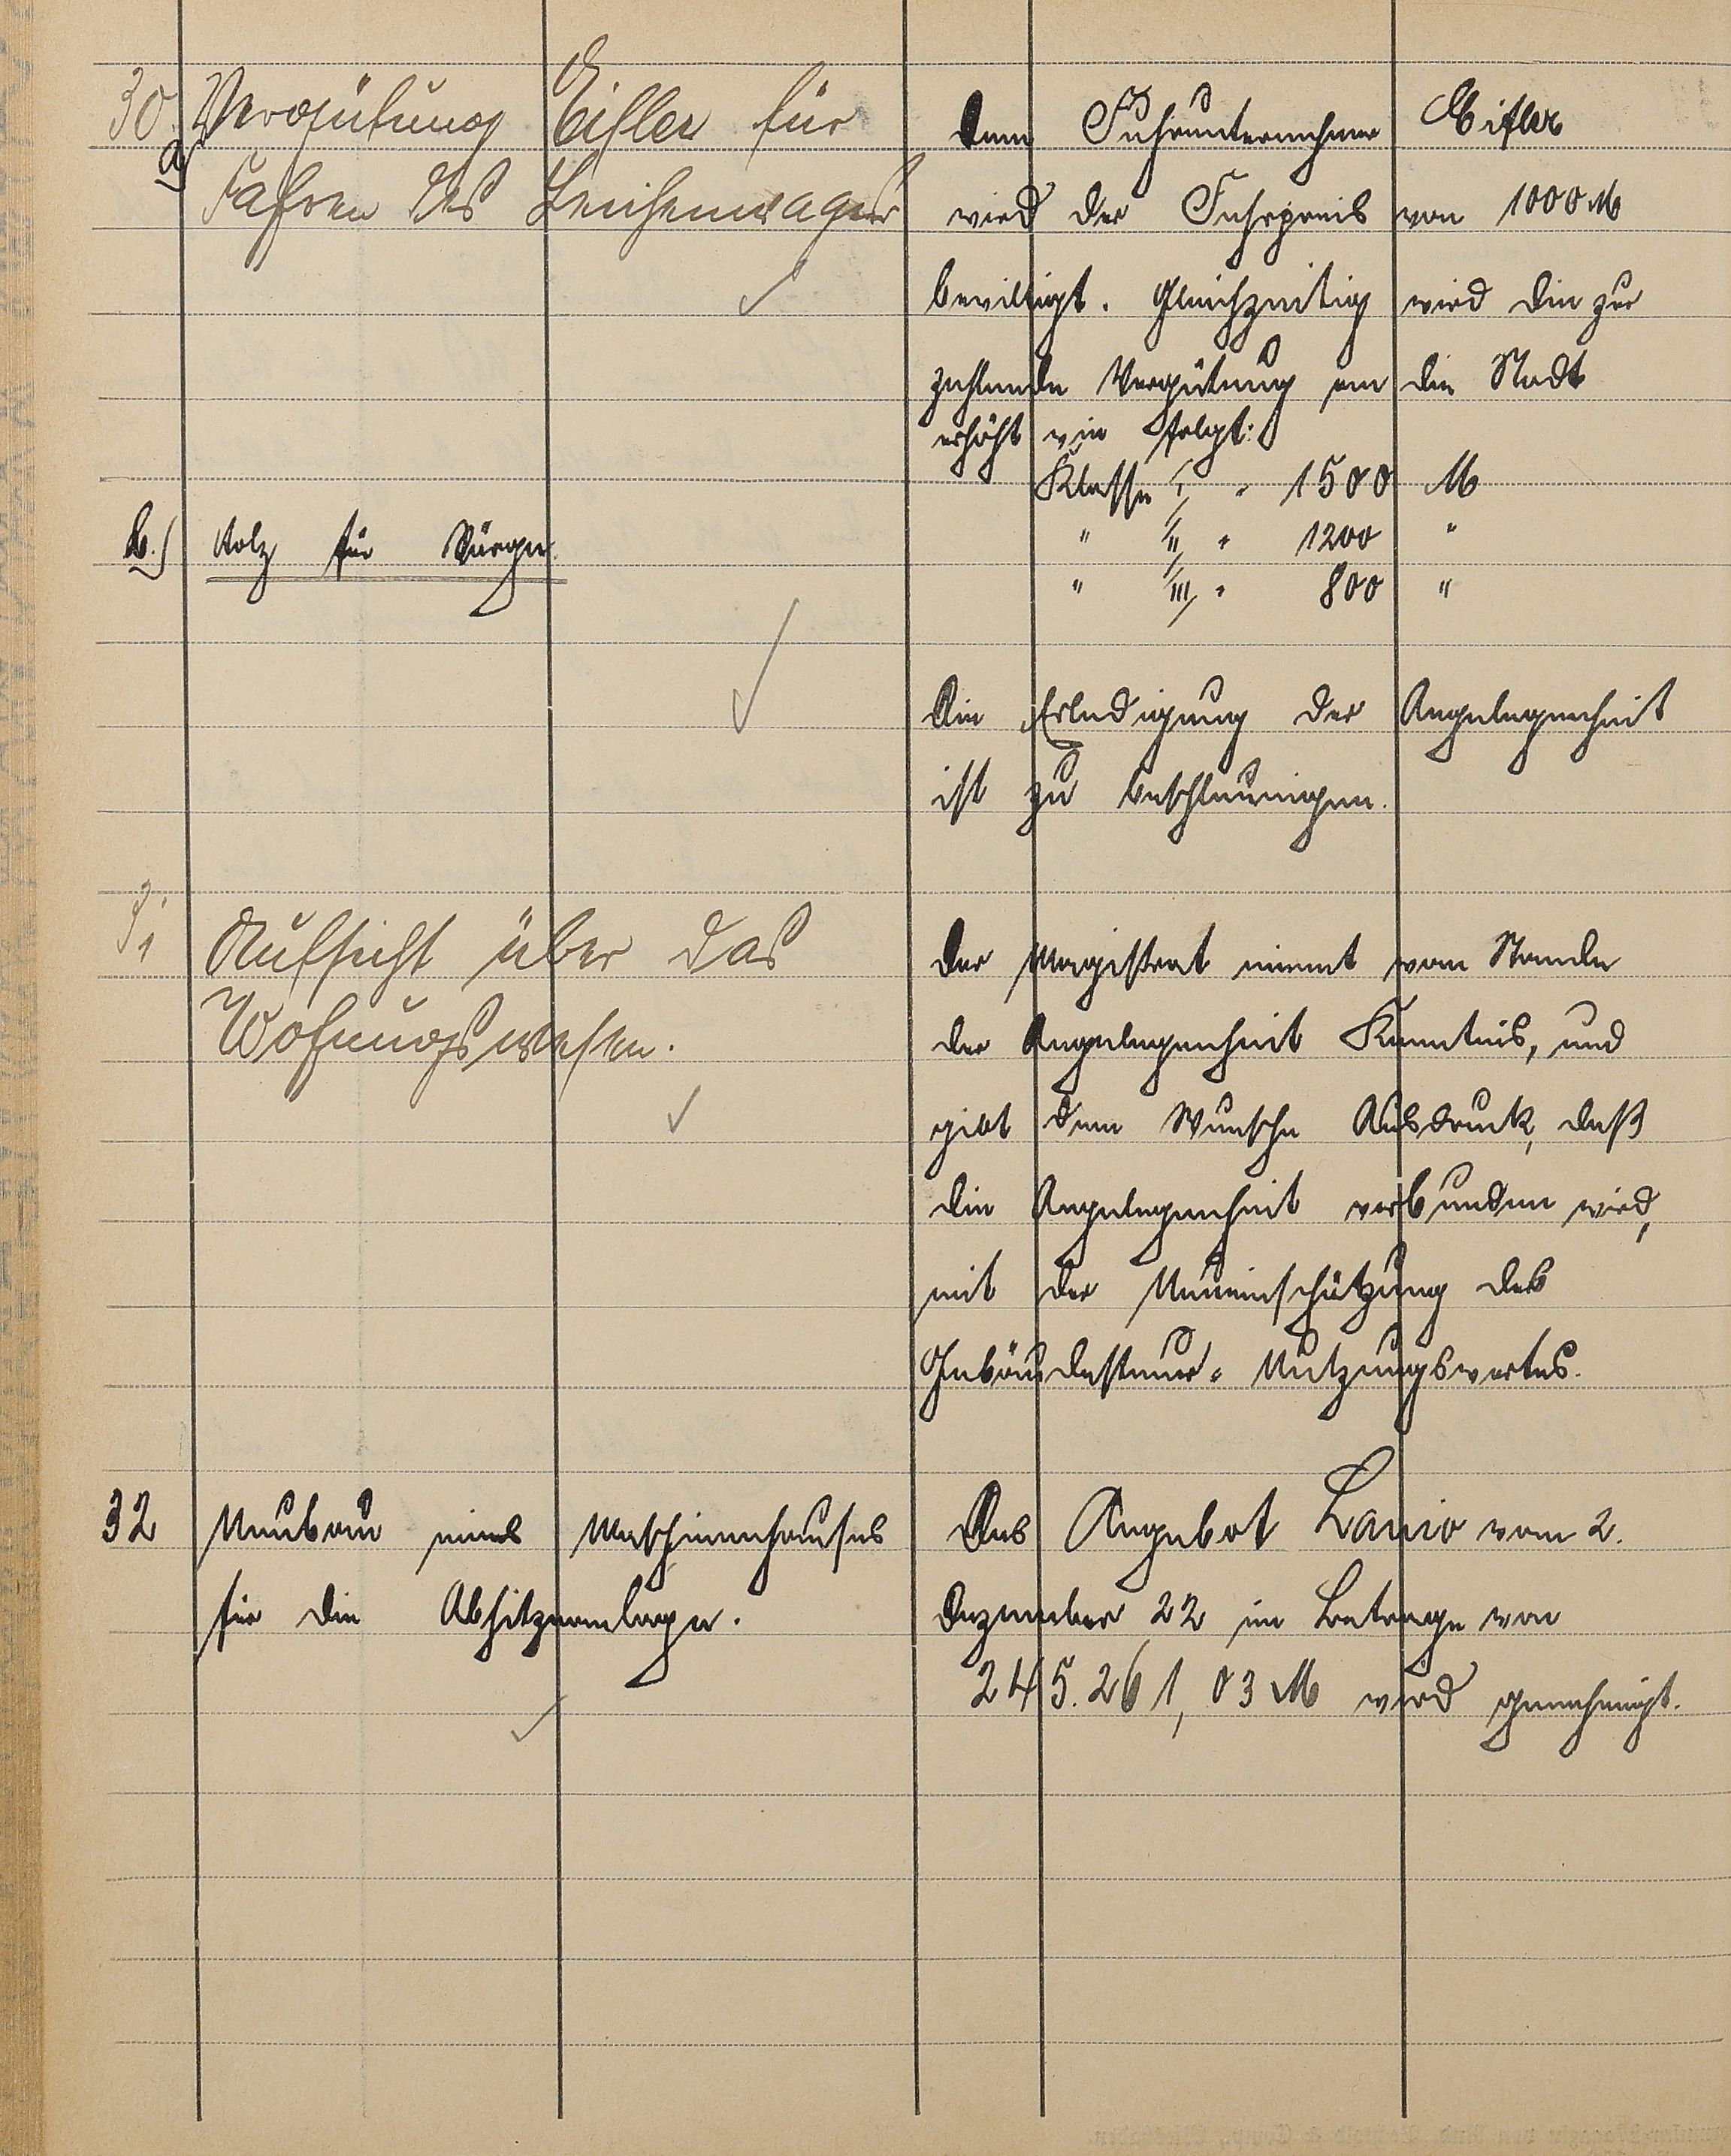 30.
a)
Vergütung Eisler für
Fahren des Leichenwagens
Dem Fuhrunternehmer Eisler
wird der Fuhrpreis von 1000 M
bewilligt. Gleichzeitig wird die zur
zahlende Vergütung an die Stadt
erhöht wie folgt:
Klasse I, " 1500 M
" II, " 1200 "
" III, " 800 "
b.) Holz für Särge.
Die Erledigung der Angelegenheit
ist zu beschleunigen.
31
Aufsicht über das
Wohnungswesen.
Der Magistrat nimmt vom Stande
der Angelegenheit Kenntnis, und
gibt dem Wunsche Ausdruck, daß
die Angelegenheit verbunden wird,
mit der Neueinschätzung des
Gebäudesteuer-Nutzungswertes.
32
Neubau eines Maschinenhauses
für die Absitzanlage.
Das Angebot Lanio vom 2.
Dezember 22 im Betrage von
245.261,03 M wird genehmigt.